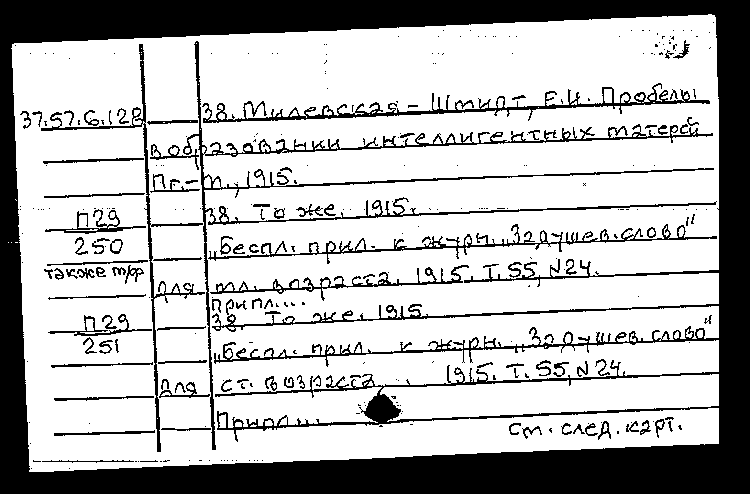 37.57.6.128 38. Милевская-Шмидт, Е.И. Пробелы
в образовании интеллигентных матерей
Пг.-м., 1915.
П29 38. То же. 1915.
250 „Беспл. прил. к журн. „Задушев. слово"
также м/ф для мл. возраста. 1915. Т. 55, N24.
Припл...
П29 38. То же. 1915.
251 „Беспл. прил. к журн. „Задушев. слово"
для ст. возраста. 1915. Т. 55, N24.
Припл...
см. след. карт.